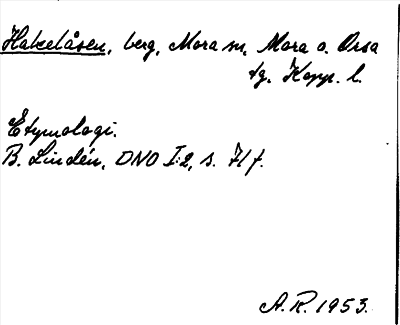 Hakelåsen, berg, Mora sn, Mora o. Orsa
tg, Kopp. l.
Etymologi.
B. Lindén, DNO I:2, s. 71 f.
A.R. 1953.